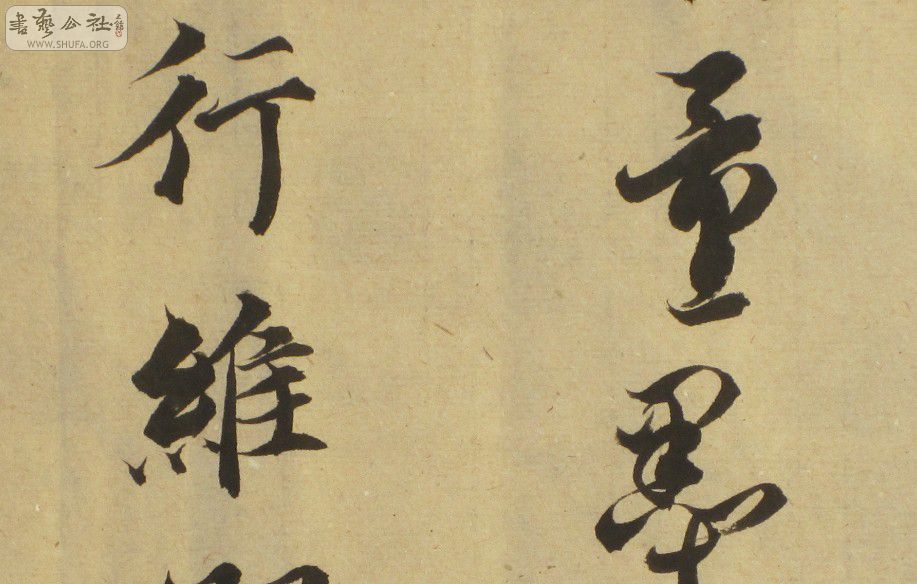 書藝公社
WWW.SHUFA.ORG
量墨
行維